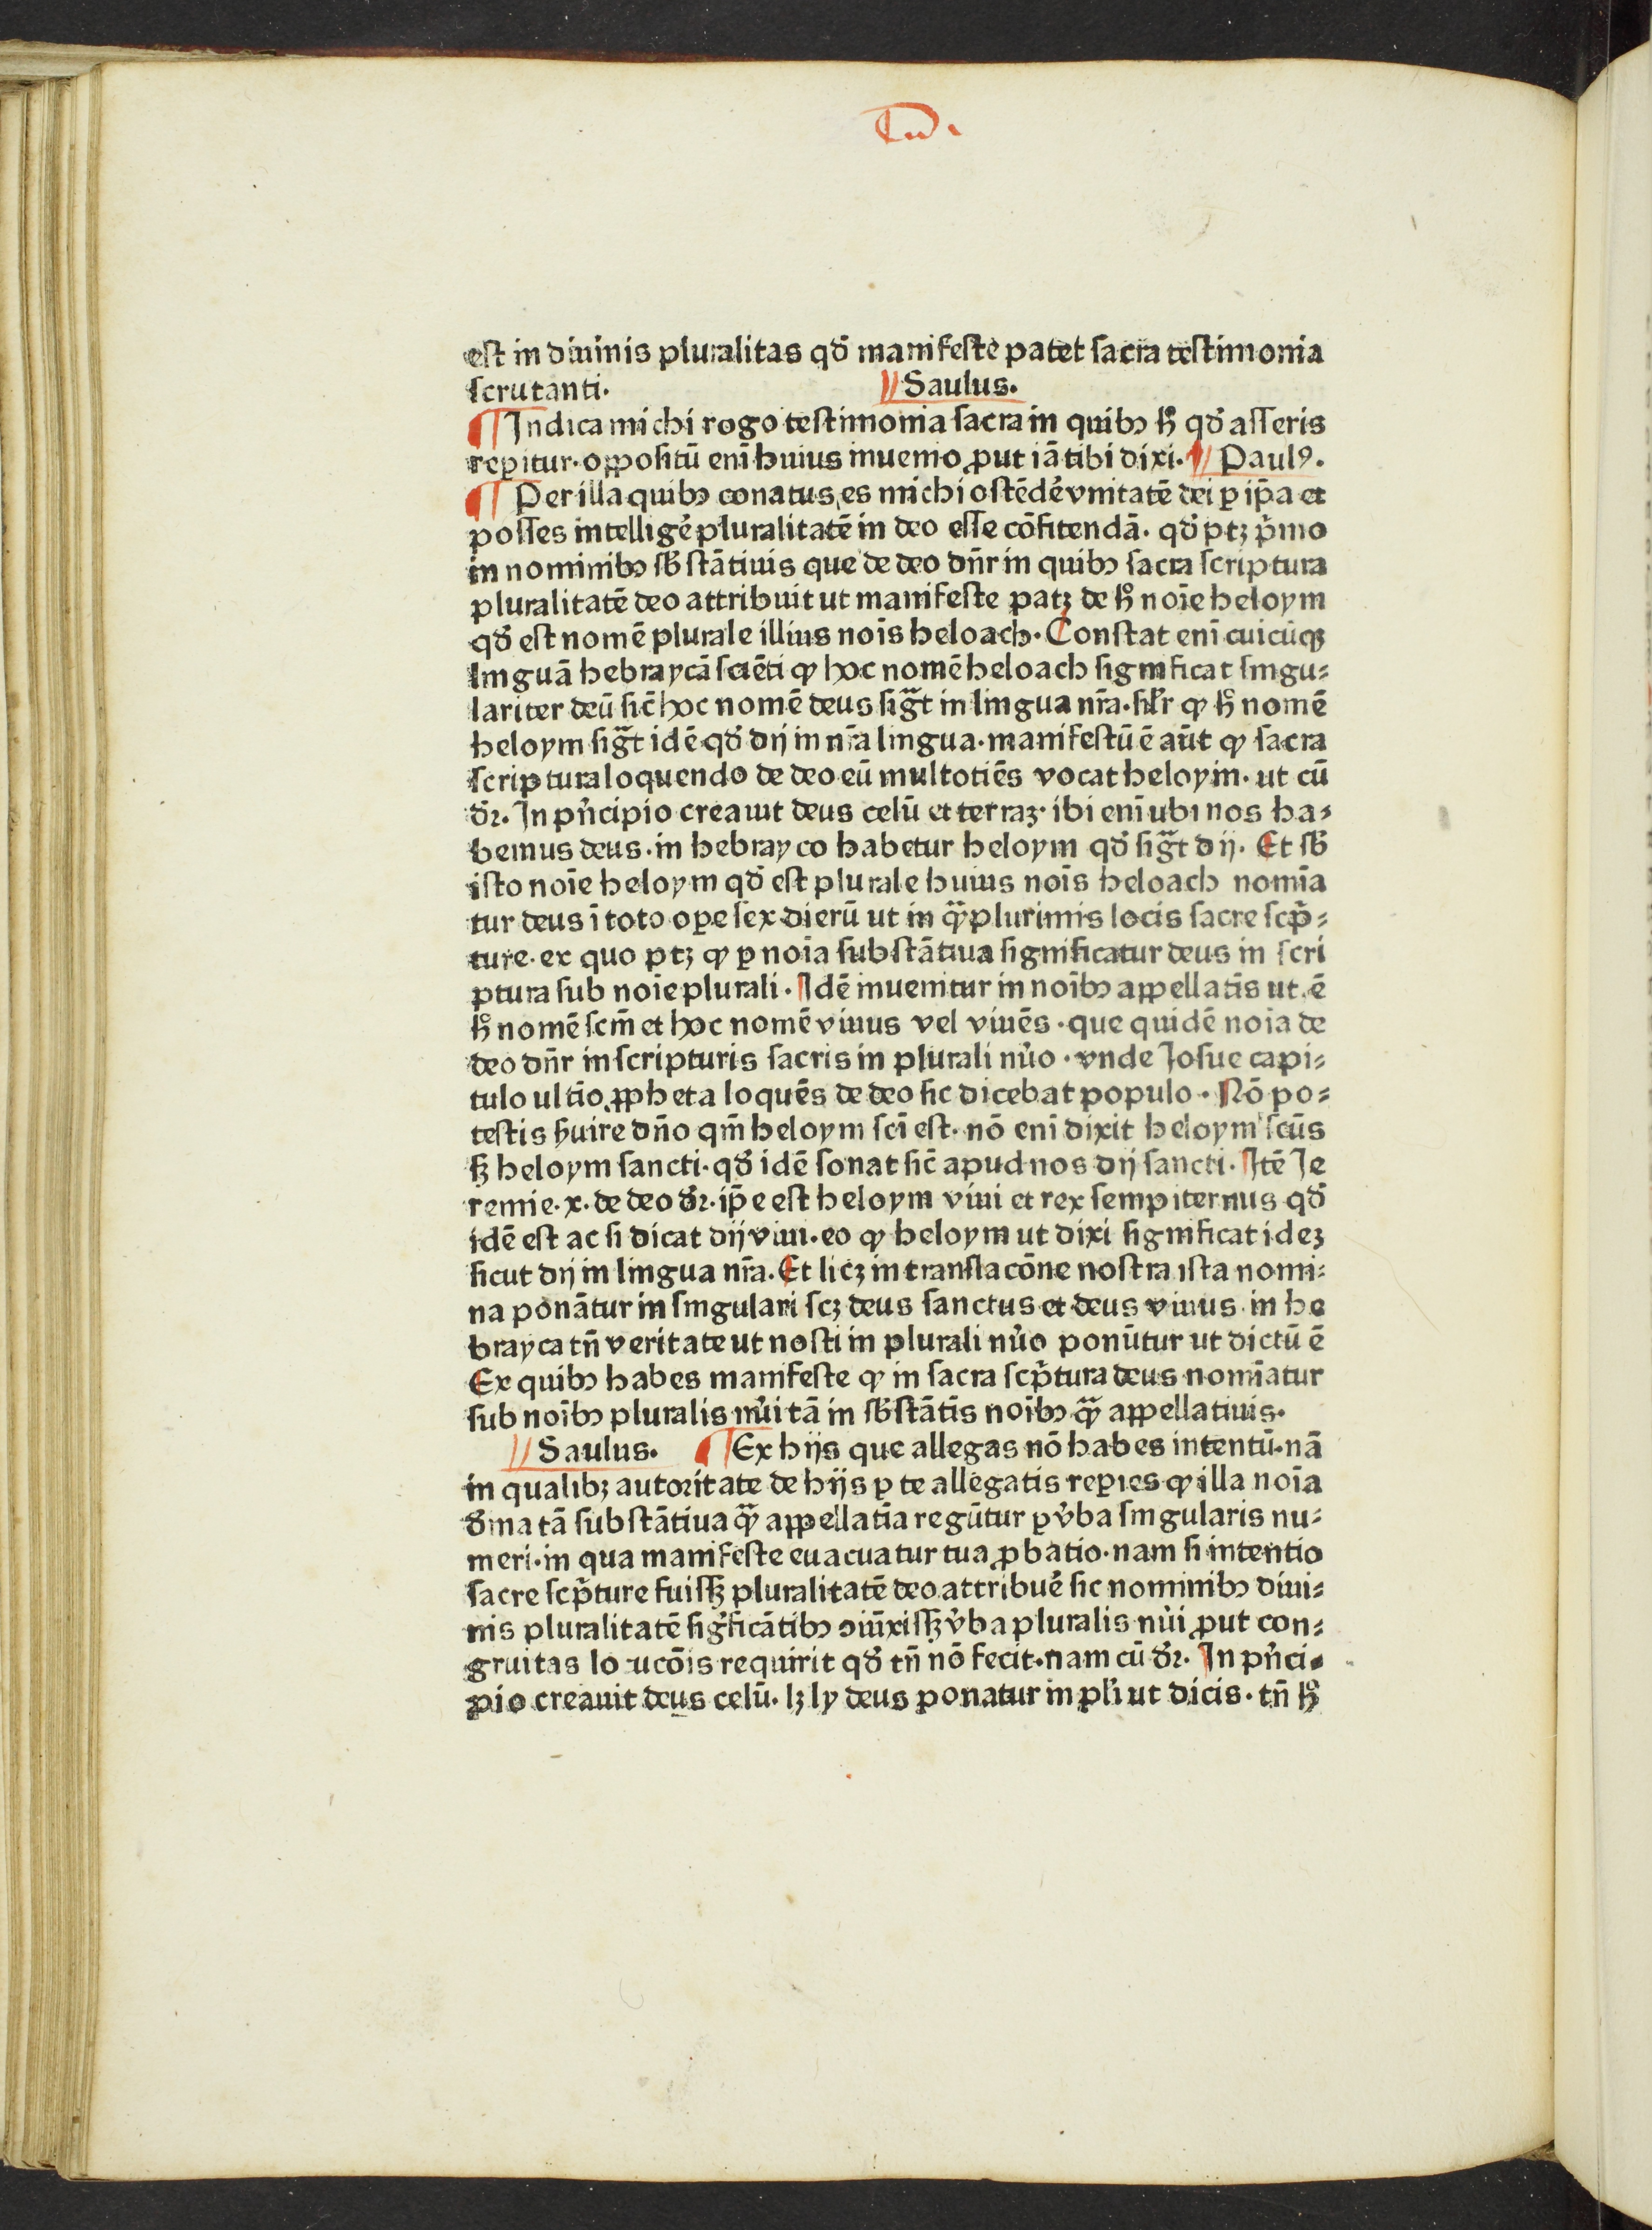 est in diuinis pluralitas qď manifeste patet sacra testimonia
scrutanti. Saulus.
¶ Indica michi rogo testimonia sacra in quibꝫ hͦ qď asseris
reꝑitur·oꝓpositū enī huius inuenio ꝓut iā tibi dixi. Paulꝰ.
¶ Per illa quibꝫ conatus es michi ostēdē vnitatē dei ꝑ ip̄a et
posses intelligē pluralitatē in deo esse cōfitendā· qď ptꝫ pͥmo
in nominibꝫ sƀstātiuis que de deo dn̄r in quibꝫ sacra scriptura
pluralitatē deo attribuit ut manifeste patꝫ de hͦ noīe heloym
qď est nomē plurale illius noīs heloach· Constat enī cuicūqꝫ
linguā hebraycā sciēti ꝙ hoc nomē heloach significat singu⸗
lariter deū sic̄ hoc nomē deus sigᷓt in lingua nr̄a·silr̄ ꝙ hͦ nomē
heloym sigᷓt idē qď dij in nr̄a lingua·manifestū ē aūt ꝙ sacra
scriptura loquendo de deo eū multotiēs vocat heloym· ut cū
dꝛ̄. In pͥncipio creauit deus celū et terraꝫ· ibi enī ubi nos ha⸗
bemus deus·in hebrayco habetur heloym qď sigᷓt dij· Et sƀ
isto noīe heloym qď est plurale huius noīs heloach nomīa
tur deus ī toto oꝑe sex dierū ut in qᷓplurimis locis sacre scpͥ⸗
ture· ex quo ptꝫ ꝙ ꝑ noīa substātiua significatur deus in scri
ptura sub noīe plurali· Idē inuenitur in noībꝫ appellatīs ut ē
hͦ nomē scm̄ et hoc nomē viuus vel viuēs·que quidē noīa de
deo dn̄r in scripturis sacris in plurali nu᷑o·vnde Josue capi⸗
tulo ultīo ꝓpheta loquēs de deo sic dicebat populo· Nō po⸗
testis ẜuire dn̄o qm̄ heloym scī est· nō enī dixit heloym scūs
sꝫ heloym sancti·qď idē sonat sic̄ apud nos dij sancti· Itē Je
remie·x·de deo dꝛ̄·ip̄e est heloym viui et rex sempiternus qď
idē est ac si dicat dij viui·eo ꝙ heloym ut dixi significat ideꝫ
sicut dij in lingua nr̄a. Et licꝫ in translacōne nostra ista nomi⸗
na ponātur in singulari scꝫ deus sanctus et deus viuus in he
brayca tn̄ veritate ut nosti in plurali nu᷑o ponūtur ut dictū ē
Ex quibꝫ habes manifeste ꝙ in sacra scpͥtura deus nomīatur
sub noībꝫ pluralis nu᷑i tā in sƀstātīs noībꝫ qᷓ appellatiuis.
Saulus. ¶ Ex hijs que allegas nō habes intentū·nā
in qualibꝫ autoritate de hijs ꝑ te allegatis reꝑies ꝙ illa noīa
d᷑ina tā substātiua qᷓ appellatīa regūtur ꝑ v᷑ba singularis nu⸗
meri·in qua manifeste euacuatur tua ꝓbatio·nam si intentio
sacre scpͥture fuissꝫ pluralitatē deo attribuē sic nominibꝫ diui⸗
nis pluralitatē sigͥficātibꝫ ꝯiūxissꝫ v᷑ba pluralis nu᷑i ꝓut con⸗
gruitas lo ucōis requirit qď tn̄ nō fecit·nam cū dꝛ̄. In pͥnci⸗
pio creauit deus celū· lꝫ ly deus ponatur in plͥi ut dicis· tn̄ hͦ